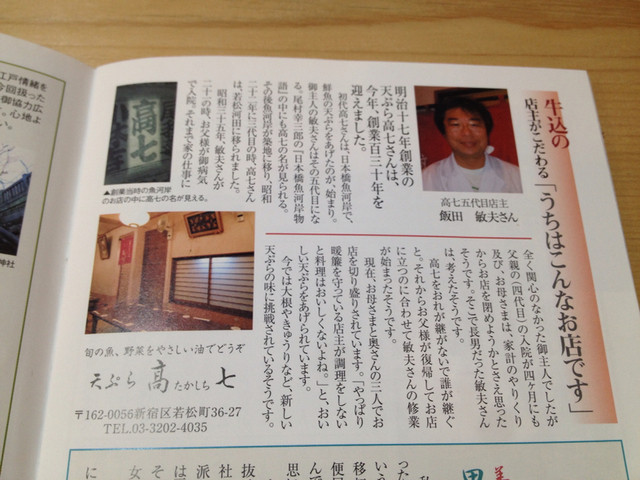 牛込の
店主がこだわる「うちはこんなお店です」
高七五代目店主
飯田 敏夫さん
明治十七年創業の
天ぷら高七さんは、
今年、創業百三十年を
迎えました。
初代高七さんは、日本橋魚河岸で、
鮮魚の天ぷらをあげたのが、始まり。
御主人の敏夫さんはその五代目にな
る。尾村幸三郎の『日本橋魚河岸物
語』の中にも高七の名が見られる。
その後魚河岸が築地に移り、昭和
二十二年に三代目の時、高七さん
は、若松河田に移られました。
昭和三十五年、敏夫さんが
二十一の時、お父様が御病気
で入院。それまで家の仕事に
全く関心のなかった御主人でしたが
父親の(四代目)の入院が四ヶ月にも
及び、お母さまは、家計のやりくり
からお店を閉めようかとさえ思った
そうです。そこで長男だった敏夫さん
は、考えたそうです。
高七をおれが継がないで誰が継ぐ
と。それからお父様が復帰してお店
に立つのに合わせて敏夫さんの修業
が始まったそうです。
現在、お母さまと奥さんの三人でお
店を切り盛りされています。「やっぱり
暖簾を守っている店主が調理をしない
と料理はおいしくないよね。」と、おい
しい天ぷらをあげられています。
今では大根やきゅうりなど、新しい
天ぷらの味に挑戦されているそうです。
高七
▲創業当時の魚河岸
のお店の中に高七の名が見える。
旬の魚、野菜をやさしい油でどうぞ
天ぷら 高七 たかしち
〒162-0056新宿区若松町36-27
TEL.03-3202-4035
江戸情緒を
今回扱った
御協力広
。心地よ
い。
神社